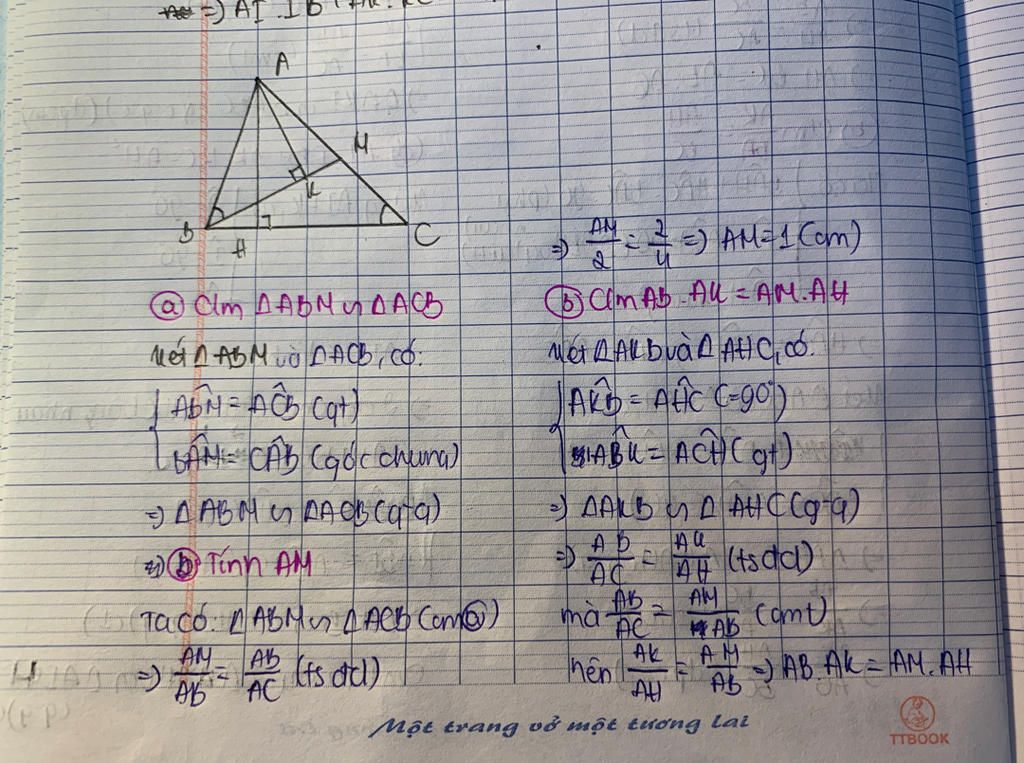 =) AI.IB
A
M
K
B
H
C
ⓐ C/m ΔABM ∽ ΔACB
Xét ΔABM và ΔACB, có:
AB̂M = AĈB (gt)
BÂM = CÂB (góc chung)
=) ΔABM ∽ ΔACB (g-g)
=) ⓑ Tính AM
Ta có: ΔABM ∽ ΔACB (cm ⓐ)
=) AM/AB = AB/AC (tsđd)
=) AM/2 = 2/4 =) AM = 1 (cm)
ⓑ C/m AB.AK = AM.AH
Xét ΔAKB và ΔAHC, có:
AK̂B = AĤC (=90°)
AB̂K = AĈH (gt)
=) ΔAKB ∽ ΔAHC (g-g)
=) AB/AC = AK/AH (tsđd)
mà AB/AC = AM/AB (cmt)
nên AK/AH = AM/AB =) AB.AK = AM.AH
Một trang vở một tương lai
TTBOOK